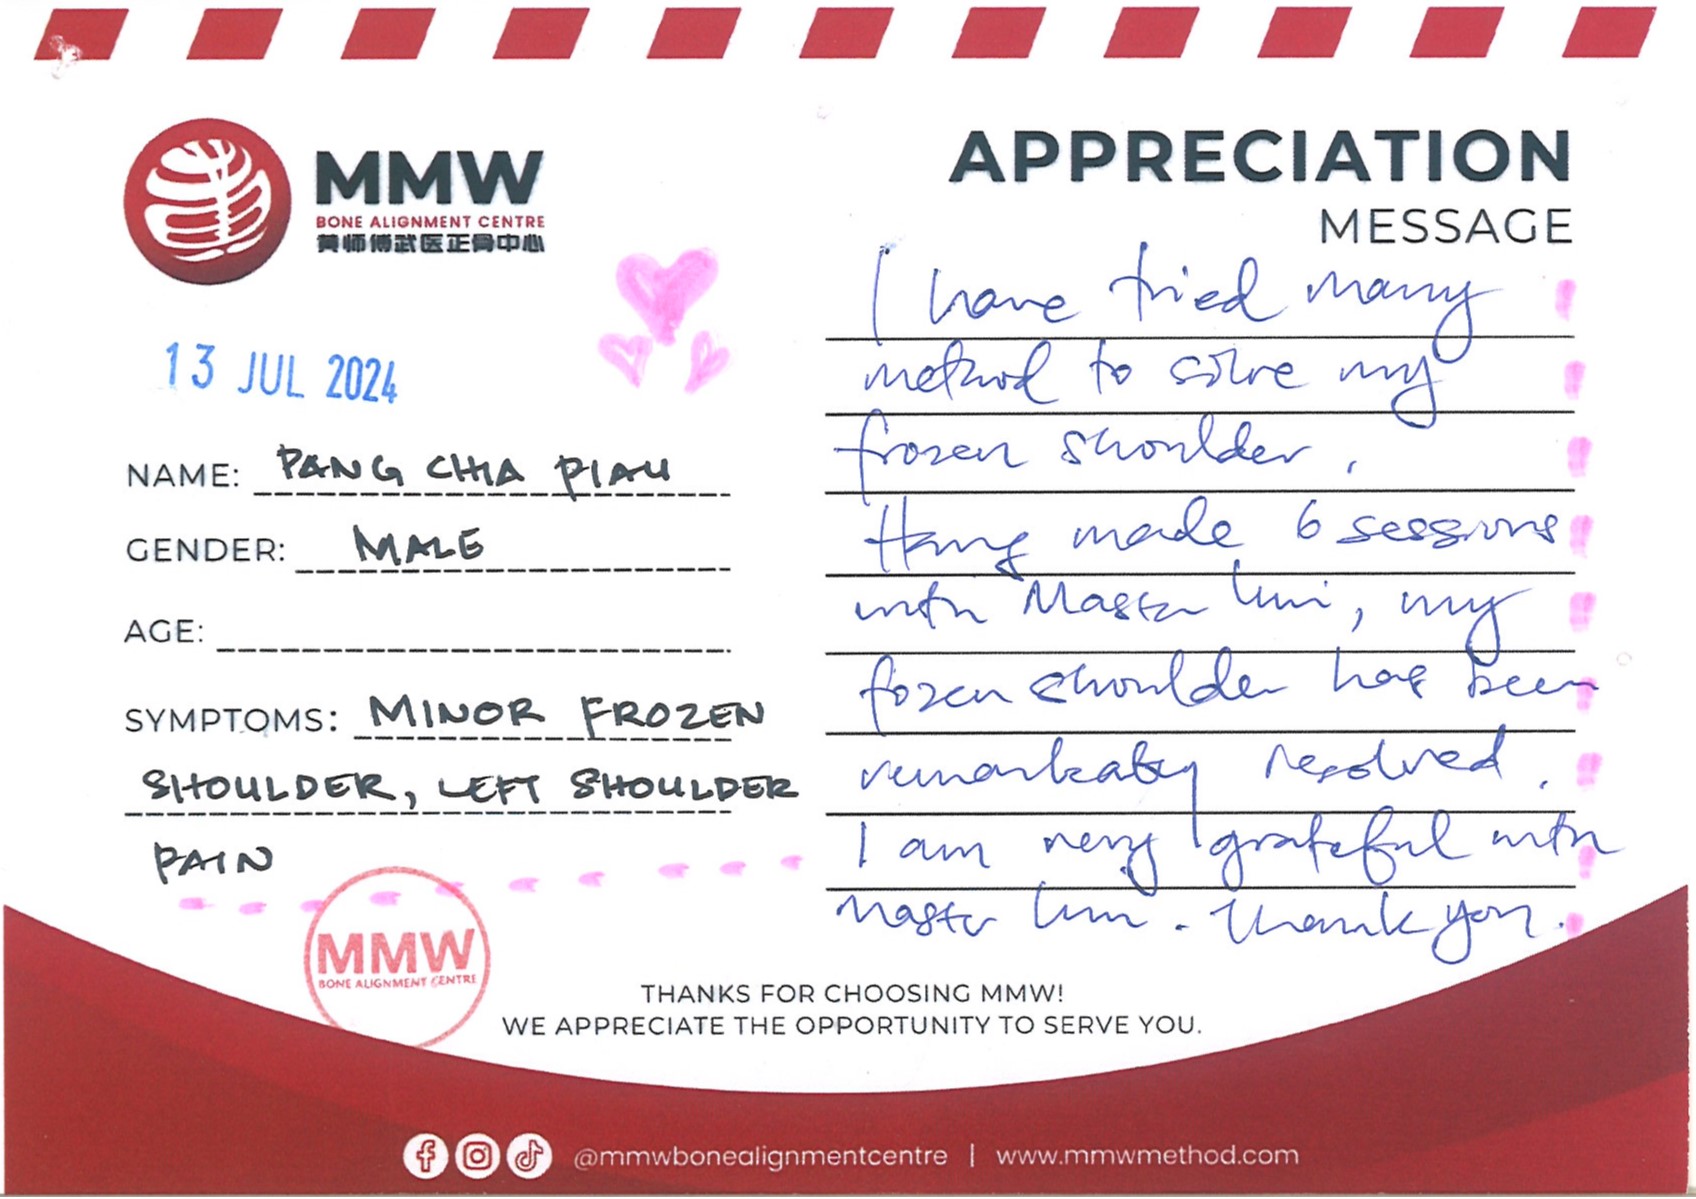 MMW
BONE ALIGNMENT CENTRE
黄师傅武医正骨中心
APPRECIATION
MESSAGE
13 JUL 2024
NAME: PANG CHIA PIAU
GENDER: MALE
AGE:
SYMPTOMS: MINOR FROZEN
SHOULDER, LEFT SHOULDER
PAIN
I have tried many
method to solve my
frozen shoulder.
Having made 6 sessions
with Master Lim, my
fozen shoulder has been
remarkably resolved.
I am very grateful with
Master Lim. Thank you.
MMW
BONE ALIGNMENT CENTRE
THANKS FOR CHOOSING MMW!
WE APPRECIATE THE OPPORTUNITY TO SERVE YOU.
@mmwbonealignmentcentre | www.mmwmethod.com